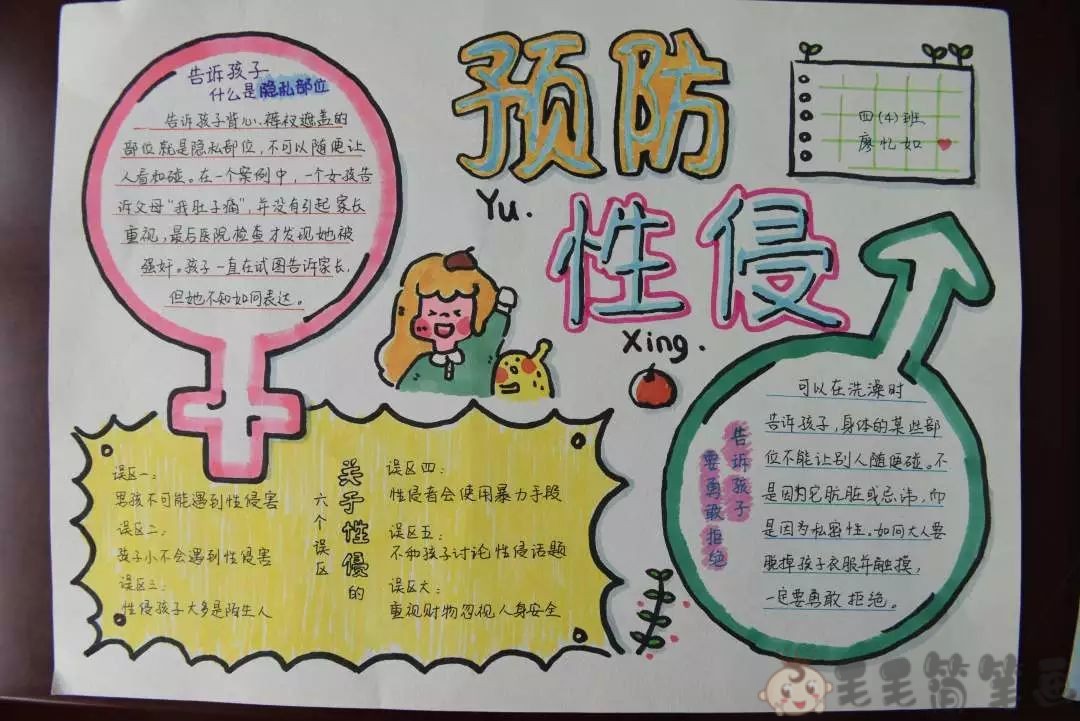 预防
Yu.
性侵
Xing.
四(4)班
廖忆如
告诉孩子
什么是隐私部位
告诉孩子背心、裤衩遮盖的
部位就是隐私部位,不可以随便让
人看和碰。在一个案例中,一个女孩告
诉父母“我肚子痛”,并没有引起家长
重视,最后医院检查才发现她被
强奸。孩子一直在试图告诉家长,
但她不知如何表达。
关于性侵的
六个误区
误区一:
男孩不可能遇到性侵害
误区二:
孩子小不会遇到性侵害
误区三:
性侵孩子大多是陌生人
误区四:
性侵者会使用暴力手段
误区五:
不和孩子讨论性侵话题
误区六:
重视财物忽视人身安全
告诉孩子
要勇敢拒绝
可以在洗澡时
告诉孩子,身体的某些部
位不能让别人随便碰。不
是因为它肮脏或忌讳,而
是因为私密性。如何大人要
脱掉孩子衣服并触摸,
一定要勇敢拒绝。
毛毛简笔画